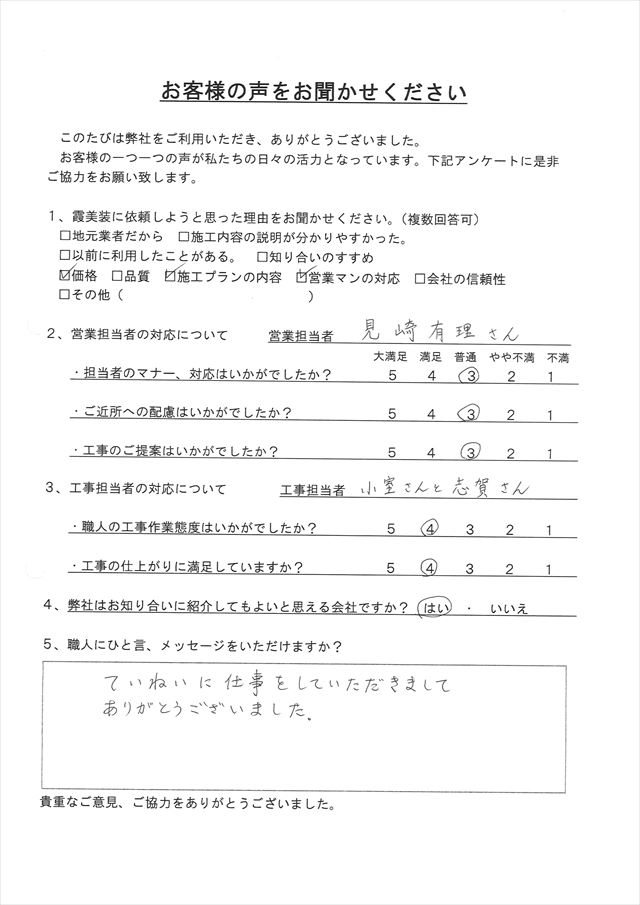 お客様の声をお聞かせください
このたびは弊社をご利用いただき、ありがとうございました。
お客様の一つ一つの声が私たちの日々の活力となっています。下記アンケートに是非
ご協力をお願い致します。
1、霞美装に依頼しようと思った理由をお聞かせください。（複数回答可）
□地元業者だから □施工内容の説明が分かりやすかった。
□以前に利用したことがある。 □知り合いのすすめ
☑価格 □品質 ☑施工プランの内容 ☑営業マンの対応 □会社の信頼性
□その他（ ）
2、営業担当者の対応について 営業担当者 見崎有理さん
大満足 満足 普通 やや不満 不満
・担当者のマナー、対応はいかがでしたか？ 5 4 3 2 1
・ご近所への配慮はいかがでしたか？ 5 4 3 2 1
・工事のご提案はいかがでしたか？ 5 4 3 2 1
3、工事担当者の対応について 工事担当者 小室さんと志賀さん
・職人の工事作業態度はいかがでしたか？ 5 4 3 2 1
・工事の仕上がりに満足していますか？ 5 4 3 2 1
4、弊社はお知り合いに紹介してもよいと思える会社ですか？ はい ・ いいえ
5、職人にひと言、メッセージをいただけますか？
ていねいに仕事をしていただきまして
ありがとうございました。
貴重なご意見、ご協力をありがとうございました。